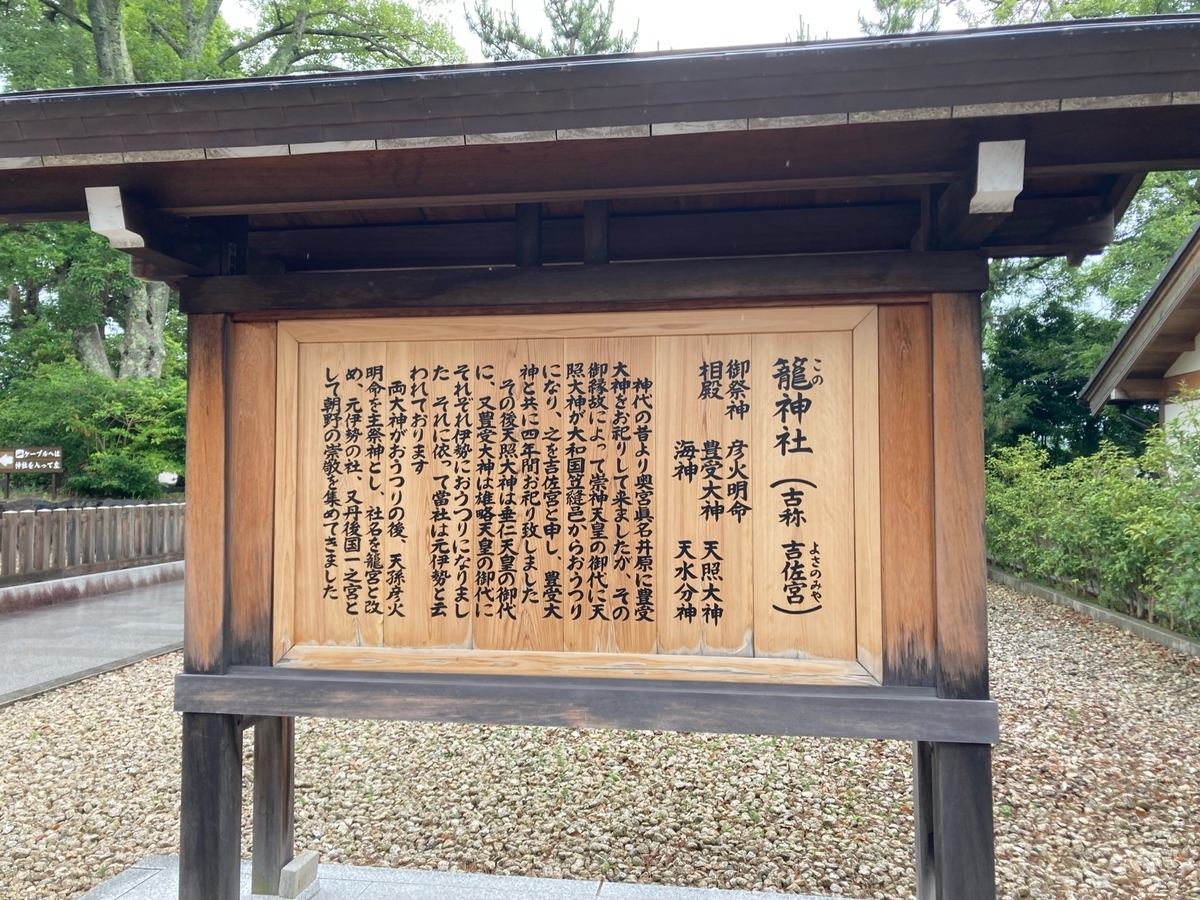 籠神社（古称　吉佐宮）
この
よさのみや
御祭神　彦火明命
相殿　豊受大神　天照大神
海神　天水分神
神代の昔より奥宮眞名井原に豊受
大神をお祀りして来ましたが、その
御縁故によって崇神天皇の御代に天
照大神が大和国笠縫邑からおうつり
になり、之を吉佐宮と申し、豊受大
神と共に四年間お祀り致しました
その後天照大神は垂仁天皇の御代
に、又豊受大神は雄略天皇の御代に
それぞれ伊勢におうつりになりまし
た　それに依って當社は元伊勢と云
われております
両大神がおうつりの後、天孫彦火
明命を主祭神とし、社名を籠宮と改
め、元伊勢の社、又丹後国一之宮と
して朝野の崇敬を集めてきました
ケーブルへは
神社を入って左